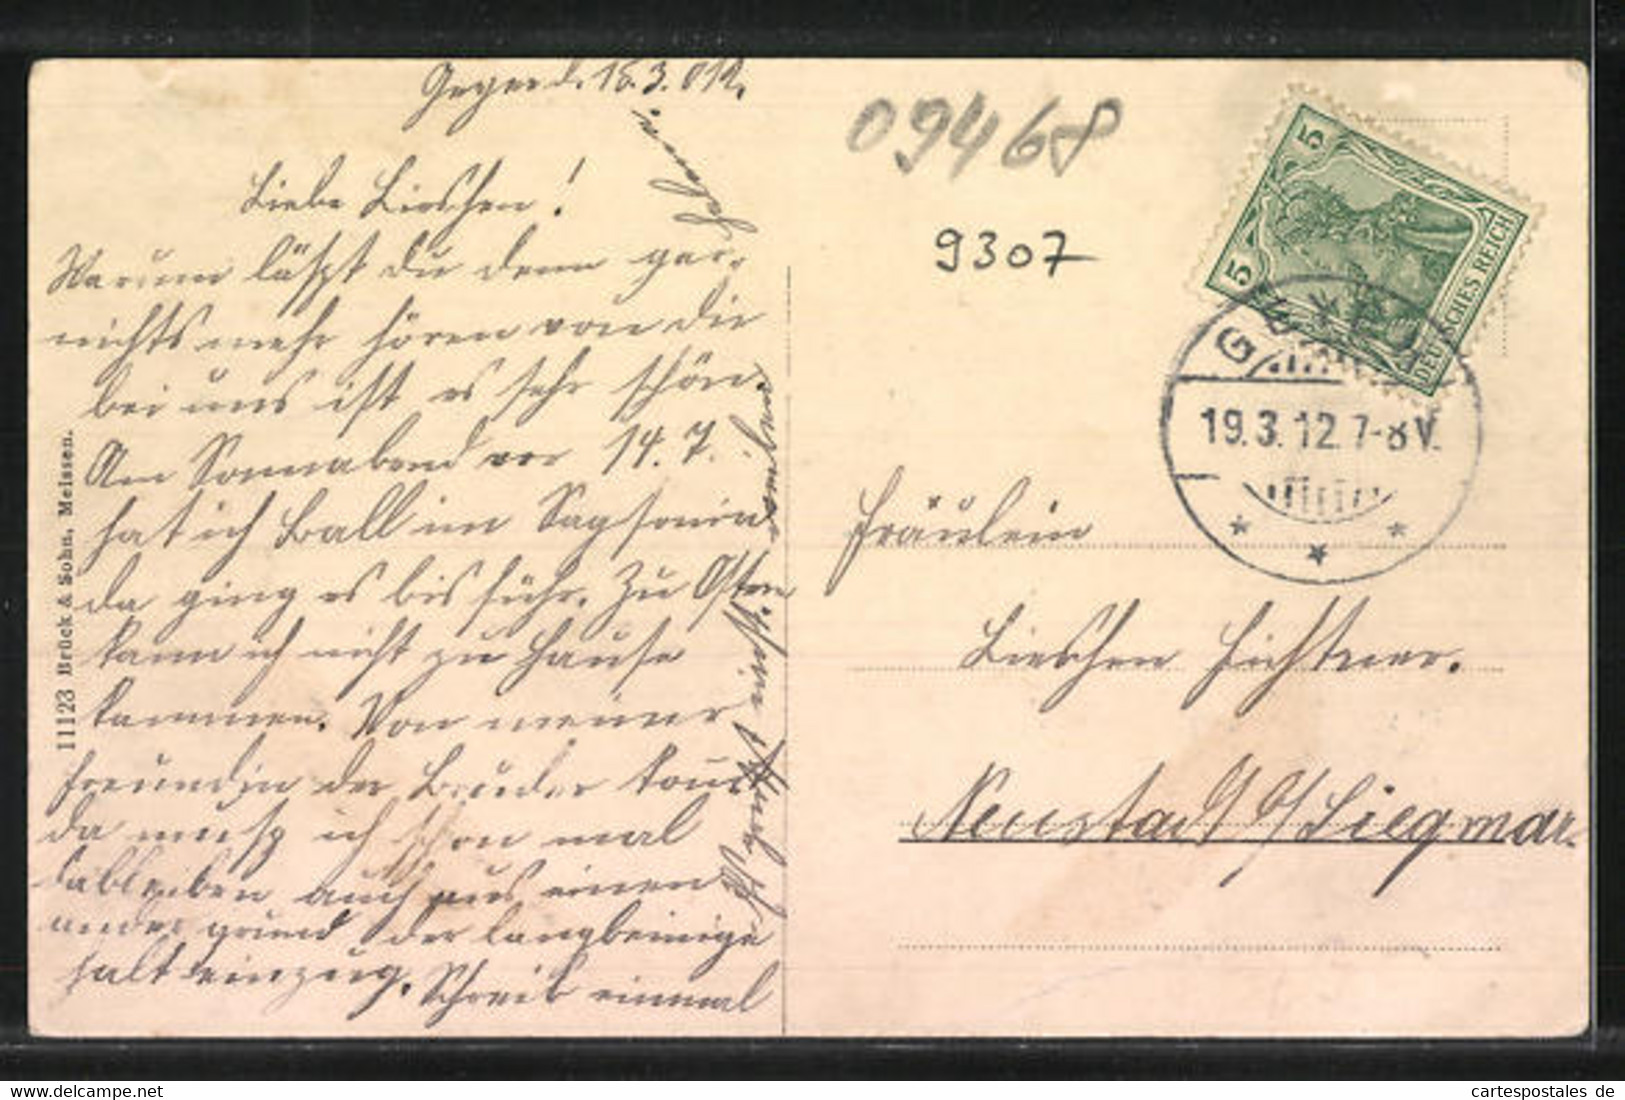 Geyer d. 18.3.012.
Liebe Lieschen!
Warum läßt du denn gar
nichts mehr hören von dir
bei uns ist es sehr schön.
Am Sonnabend vor 14. T.
hat ich Ball im
da ging es bis früh. Zu Ostern
kann ich nicht zu Hause
kommen. Von meiner
Freundin der Bruder
da muß ich schon mal
dableiben auch aus einen
ander grund der langbeinige
halt einzug. Schreib einmal
09468
9307
5
5
DEUTSCHES REICH
GEYER
19.3.12.7-8V.
Fräulein
Lieschen Fichtner.
Neustadt b/Siegmar
11123 Brück & Sohn, Meissen.
www.delcampe.net
cartespostales de